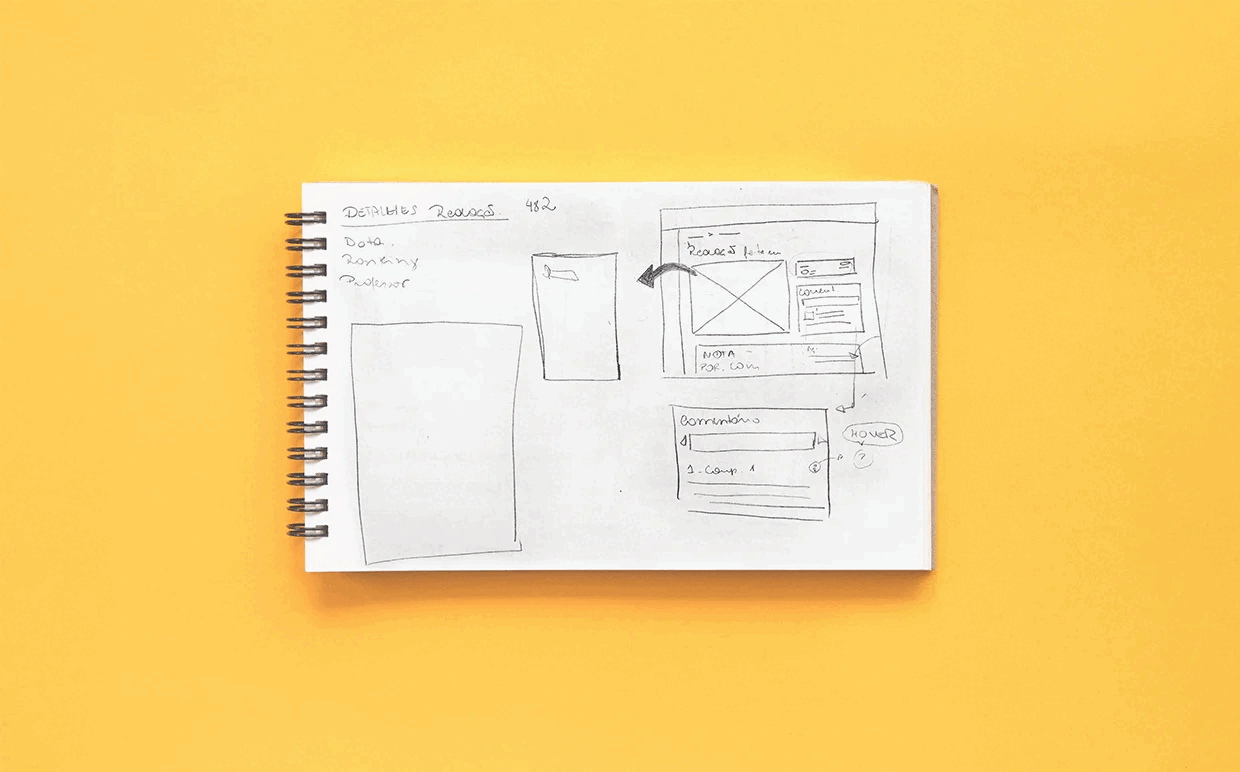 DETALHES Redação 482
Data.
Ranking
Professor
Redação
NOTA -
POR. COM
Comentário
HOVER
1 - Comp. 1
?